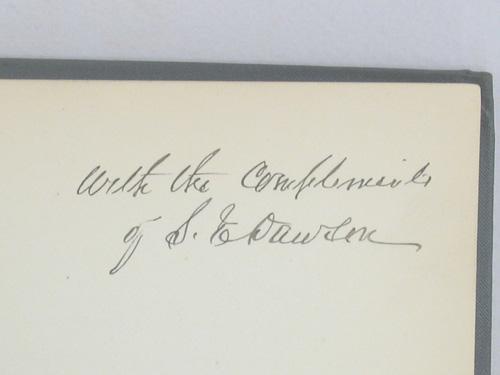 With the Compliments
of S. E Dawson